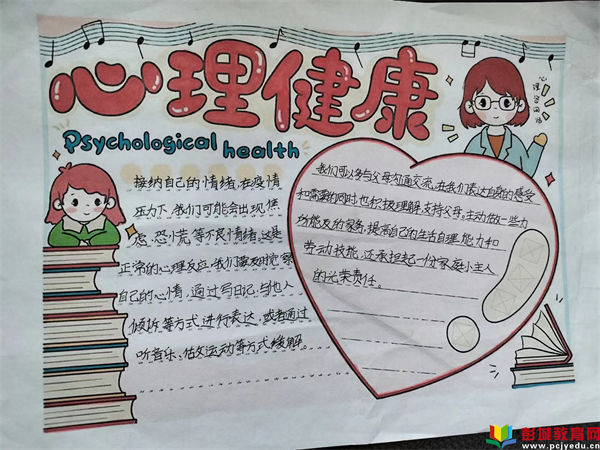 心理健康
Psychological health
心理咨询师
接纳自己的情绪,在疫情
压力下,我们可能会出现焦
虑、恐慌等不良情绪,这是
正常的心理反应,我们要及时觉察
自己的心情,通过写日记,与他人
倾拆等方式进行表达,或者通过
听音乐、估文运动等方式缓解。
我们可以多与父母沟通交流,在我们表达自身的感受
和需要的同时,也积极理解、支持父母,主动做一些力
所能及的家务,提高自己的生活自理能力和
劳动技能,还承担起一份家庭小主人
的光荣责任。
彭城教育网
www.pcjyedu.cn